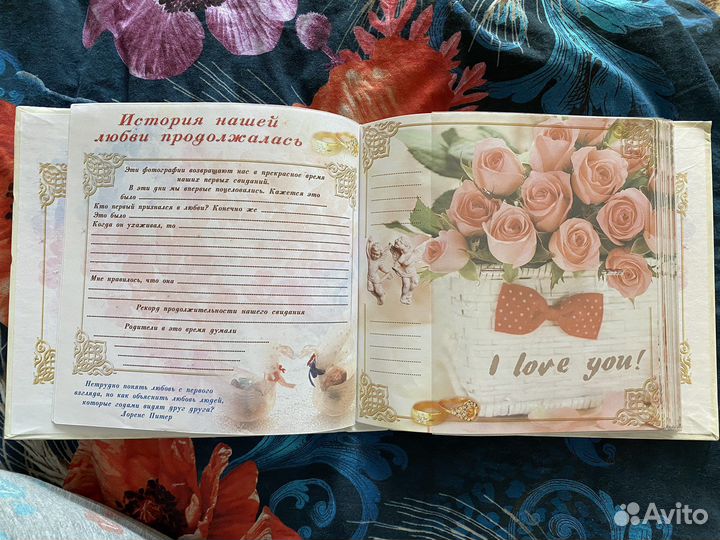 История нашей
любви продолжалась
Эти фотографии возвращают нас в прекрасное время
наших первых свиданий.
В эти дни мы впервые поцеловались. Кажется это
было
Кто первый признался в любви? Конечно же
Это было
Когда он ухаживал, то
Мне нравилось, что она
Рекорд продолжительности нашего свидания
Родители в это время думали
Нетрудно понять любовь с первого
взгляда, но как объяснить любовь людей,
которые годами видят друг друга?
Лоренс Питер
I love you!
Avito